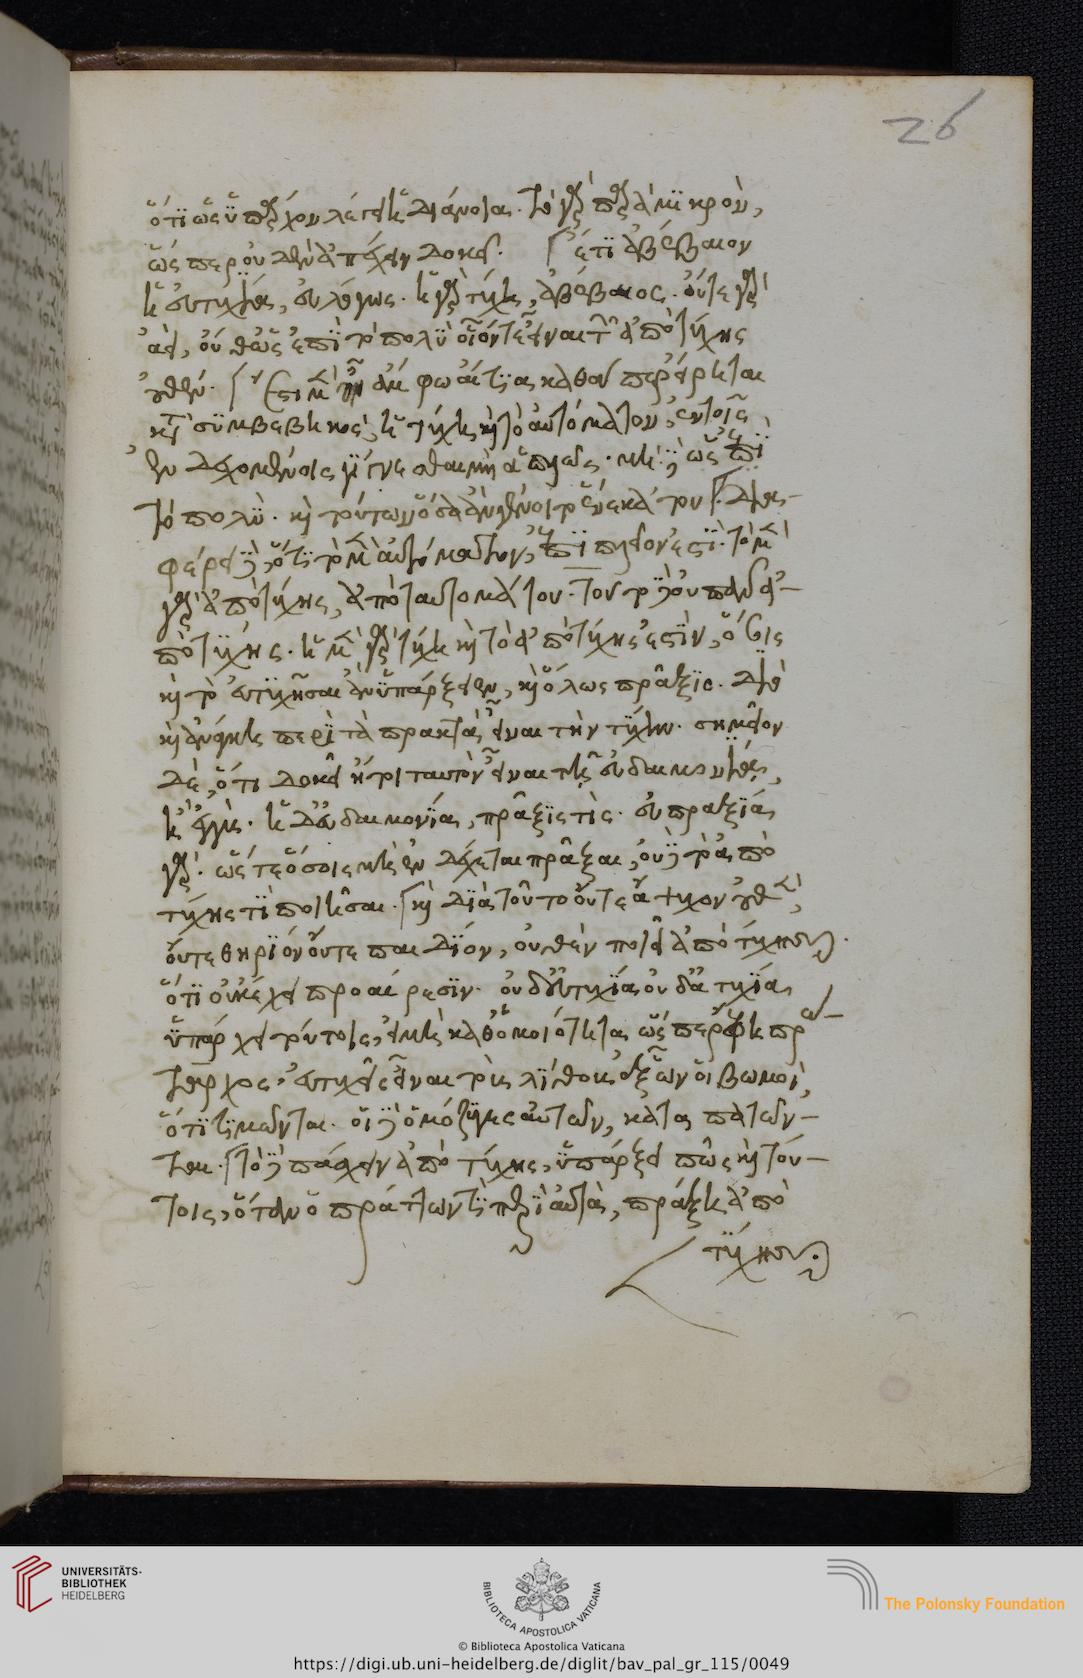 26
ὅτι ὡς ὑπάρχον λέγει ἡ διάνοια. τὸ γὰρ παρὰ μικρὸν,
ὥσπερ οὐδὲν ἀπέχειν δοκεῖ. ἔτι ἀβέβαιον
ἡ εὐτυχία, εὐλόγως. ἡ γὰρ τύχη, ἀβέβαιος. οὔτε γὰρ
ἀεὶ, οὔθ' ὡς ἐπὶ τὸ πολὺ οἷόντε εἶναι τῶν ἀπὸ τύχης
οὐθέν. ἔστι μὲν οὖν ἄμφω αἴτια, καθάπερ εἴρηται
κατὰ συμβεβηκὸς, ἡ τύχη καὶ τὸ αὐτόματον, ἐν τοῖς
ἐνδεχομένοις γίνεσθαι μὴ ἁπλῶς. μὴ δ' ὡς ἐπὶ
τὸ πολὺ. καὶ τούτων ὅσα ἂν γένοιτο ἕνεκά του. δια-
φέρει δὲ, ὅτι τὸ μὲν αὐτόματον, ἐπὶ πλεῖον ἐστὶ. τὸ μὲν
γὰρ ἀπὸ τύχης, ἀπὸ ταυτομάτου. τοῦτο δ' οὐ πᾶν ἀ-
πὸ τύχης. ἡ μὲν γὰρ τύχη καὶ τὸ ἀπὸ τύχης ἐστὶν, ὅσοις
καὶ τὸ εὐτυχῆσαι ἂν ὑπάρξειεν, καὶ ὅλως πρᾶξις. διὸ
καὶ ἀνάγκη περὶ τὰ πρακτὰ εἶναι τὴν τύχην. σημεῖον
δὲ, ὅτι δοκεῖ ἤτοι ταυτὸν εἶναι τῇ εὐδαιμονίᾳ,
ἢ ἐγγὺς. ἡ δ' εὐδαιμονία, πρᾶξις τὶς. εὐπραξία
γὰρ. ὥστε ὅσοις μὴ ἐνδέχεται πρᾶξαι, οὐδὲ τὸ ἀπὸ
τύχης τὶ ποιῆσαι. καὶ διὰ τοῦτο οὔτε ἄψυχον οὐθὲν,
οὔτε θηρίον οὔτε παιδίον, οὐθὲν ποιεῖ ἀπὸ τύχης.
ὅτι οὐκ ἔχει προαίρεσιν. οὐδ' εὐτυχία οὐδ' ἀτυχία
ὑπάρχει τούτοις, εἰ μὴ καθ' ὁμοιότητα, ὥσπερ ἔφη πρώ-
ταρχος, εὐτυχεῖς εἶναι τοὺς λίθους ἐξ ὧν οἱ βωμοὶ,
ὅτι τιμῶνται. οἱ δὲ ὁμόζυγες αὐτῶν, καταπατοῦν-
ται. τὸ δὲ πάσχειν ἀπὸ τύχης, ὑπάρξει πῶς καὶ τού-
τοις, ὅταν ὁ πράττων τὶ περὶ αὐτὰ, πράξῃ ἀπὸ
τύχης.
UNIVERSITÄTS-
BIBLIOTHEK
HEIDELBERG
BIBLIOTECA APOSTOLICA VATICANA
The Polonsky Foundation
© Biblioteca Apostolica Vaticana
https://digi.ub.uni-heidelberg.de/diglit/bav_pal_gr_115/0049